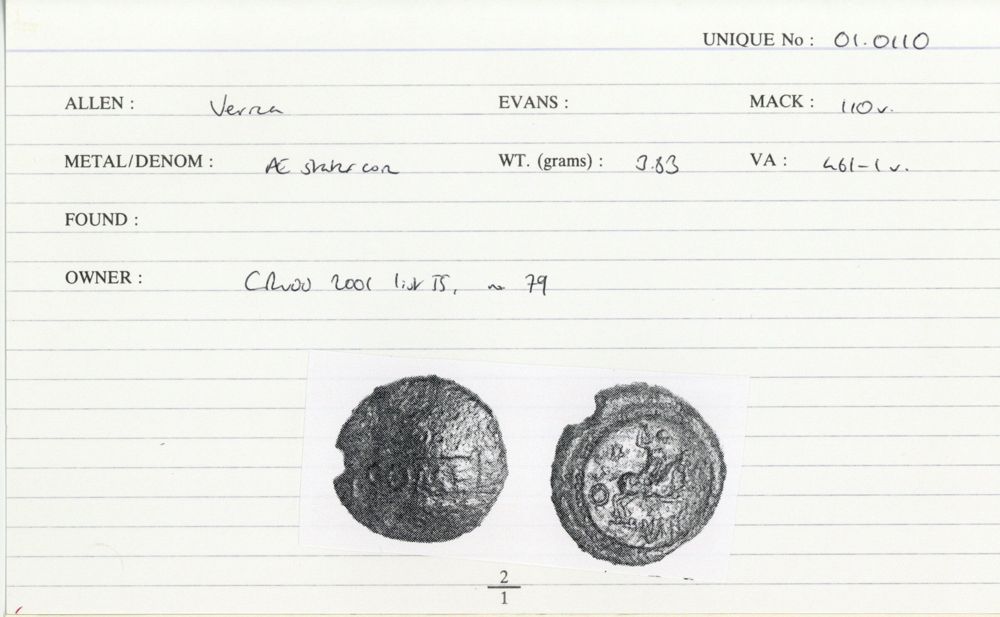 UNIQUE No : 01.0110
ALLEN : Verica EVANS : MACK : 110v.
METAL/DENOM : Æ stater core WT. (grams) : 3.83 VA : 461-1 v.
FOUND :
OWNER : CRWOO 2001 list 75, no 79
2
1